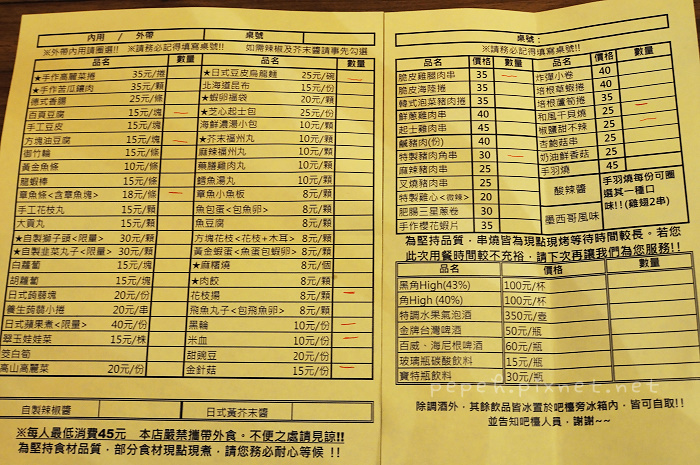 內用 / 外帶 桌號
※外帶內用請圈選!! ※請務必記得填寫桌號!! 如需辣椒及芥末醬請事先勾選
品名 數量 品名 數量
★手作高麗菜捲 35元/捲 ★日式豆皮烏龍麵 25元/碗
★手作苦瓜鑲肉 35元/顆 北海道昆布 15元/份
德式香腸 25元/條 ★蝦卵福袋 20元/顆
百頁豆腐 15元/塊 ★芝心起士包 25元/份
手工豆皮 15元/塊 海鮮濃湯小包 10元/顆
方塊油豆腐 15元/塊 ★芥末福州丸 10元/顆
御竹輪 15元/條 麻辣福州丸 10元/顆
黃金魚條 10元/條 藥膳雞肉丸 10元/顆
龍蝦棒 15元/條 鱈魚湯丸 10元/顆
章魚條<含章魚塊> 18元/條 章魚小魚板 8元/顆
手工花枝丸 15元/顆 魚包蛋<包魚卵> 8元/顆
大貢丸 15元/顆 魚豆腐 8元/顆
★自製獅子頭<限量> 30元/顆 方塊花枝<花枝+木耳> 8元/顆
★自製韭菜丸子<限量> 30元/顆 黃金蝦蛋<魚蛋包蝦卵> 8元/顆
白蘿蔔 15元/塊 ★麻糬燒 8元/個
胡蘿蔔 15元/塊 ★肉餃 8元/顆
日式蒟蒻塊 20元/份 花枝揚 8元/塊
養生蒟蒻小捲 20元/串 飛魚丸子<包飛魚卵> 8元/顆
日式蘋果煮<限量> 40元/份 黑輪 10元/份
翠玉娃娃菜 15元/株 米血 10元/份
茭白筍 甜豌豆 20元/份
高山高麗菜 20元/份 金針菇 15元/份
自製辣椒醬 日式黃芥末醬
※每人最低消費45元 本店嚴禁攜帶外食。不便之處請見諒!!
為堅持食材品質，部分食材現點現煮，請您務必耐心等候 !!
桌號：
※請務必記得填寫桌號!!
品名 價格 數量 品名 價格 數量
脆皮雞腿肉串 35 炸彈小卷 40
脆皮海陸捲 35 培根草蝦捲 40
韓式泡菜豬肉捲 35 培根蘆筍捲 35
鮮蔥雞肉串 40 和風干貝燒 25
起士雞肉串 45 椒鹽甜不辣 25
鹹豬肉(份) 40 杏鮑菇串 25
特製豬肉角串 30 奶油鮮香菇 25
麻辣豬肉串 25 手羽燒 45
叉燒豬肉串 25 酸辣醬 手羽燒每份可圈選其一種口味!!(雞翅2串)
特製雞心<微辣> 20
肥腸三星蔥卷 30 墨西哥風味
手作櫻花蝦片 35
為堅持品質，串燒皆為現點現烤等待時間較長。若您
此次用餐時間較不充裕，請下次再讓我們為您服務!!
品名 價格 數量
黑角High(43%) 100元/杯
角High (40%) 100元/杯
特調水果氣泡酒 350元/壺
金牌台灣啤酒 50元/瓶
百威、海尼根啤酒 60元/瓶
玻璃瓶碳酸飲料 15元/瓶
寶特瓶飲料 30元/瓶
pepeh.pixnet.net
除調酒外，其餘飲品皆冰置於吧檯旁冰箱內，皆可自取!!
並告知吧檯人員，謝謝~~